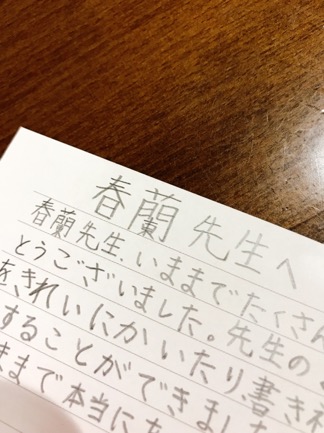 春蘭先生へ
春蘭先生、いままでたくさん
とうございました。先生の
をきれいにかいたり、書き初
することができまし
まで本当にあ